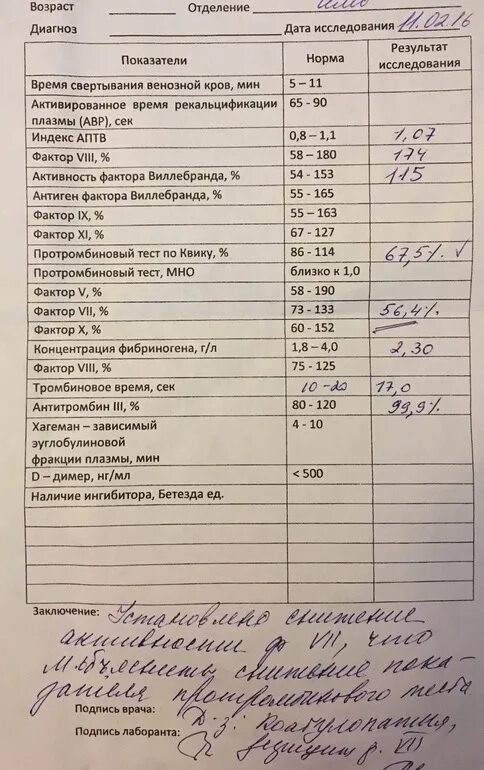 Возраст Отделение
Диагноз Дата исследования 11.02.16
Показатели Норма Результат исследования
Время свертывания венозной кров, мин 5 – 11
Активированное время рекальцификации
плазмы (АВР), сек 65 - 90
Индекс АПТВ 0,8 – 1,1 1,07
Фактор VIII, % 58 – 180 174
Активность фактора Виллебранда, % 54 - 153 115
Антиген фактора Виллебранда, % 55 - 165
Фактор IX, % 55 – 163
Фактор XI, % 67 - 127
Протромбиновый тест по Квику, % 86 - 114 67,5% √
Протромбиновый тест, МНО близко к 1,0
Фактор V, % 58 - 190
Фактор VII, % 73 - 133 56,4%
Фактор X, % 60 - 152
Концентрация фибриногена, г/л 1,8 – 4,0 2,30
Фактор VIII, % 75 - 125
Тромбиновое время, сек 10-20 17,0
Антитромбин III, % 80 - 120 99,9%
Хагеман – зависимый 4 - 10
эуглобулиновой
фракции плазмы, мин
D – димер, нг/мл < 500
Наличие ингибитора, Бетезда ед.
Заключение: Установлено снижение
активности ф VII, что
снижение пока-
зателя протромбинового теста
Подпись врача: Д-з: Коагулопатия,
Подпись лаборанта: ф. VII